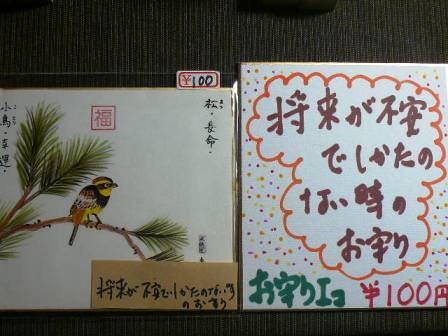 ¥100
松・長命・
まつ
福
小鳥・幸運・
ことり
将来が不安でしかたのない時
のお守り
将来が不安
でしかたの
ない時の
お守り
お守りエコ
¥100円